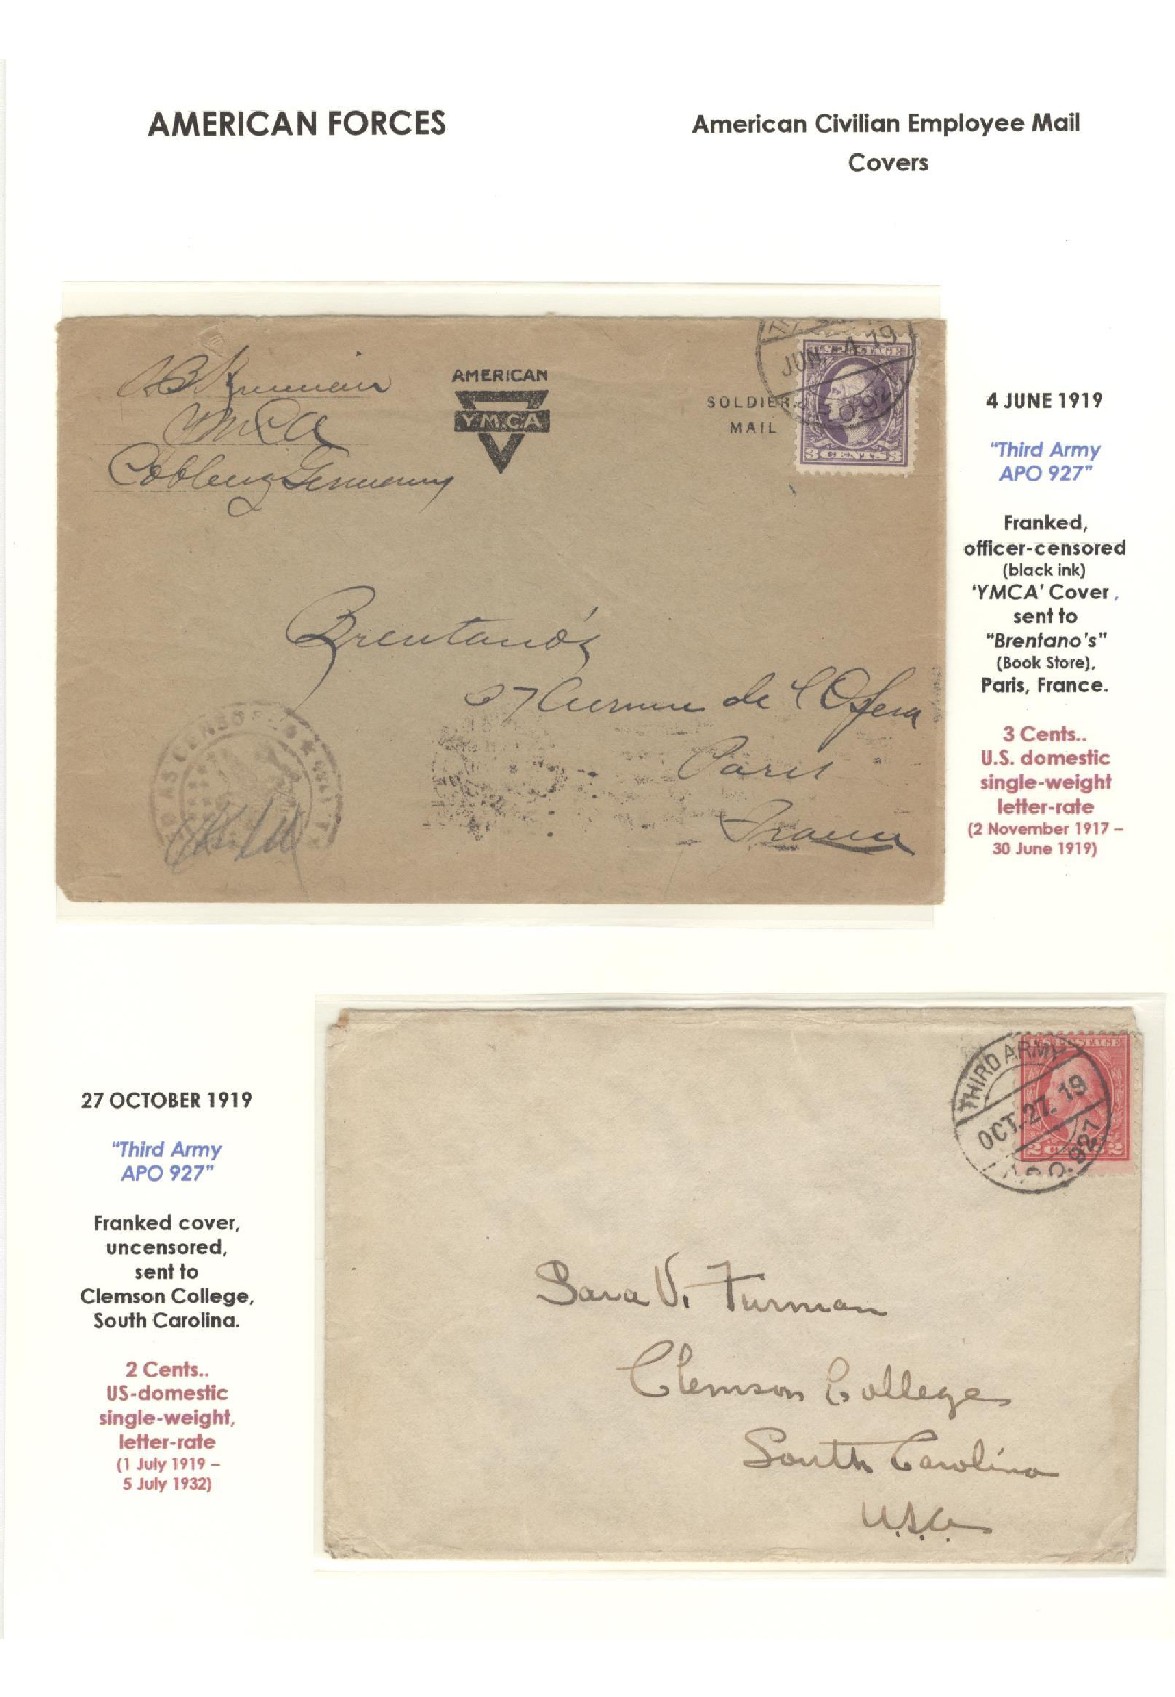 AMERICAN FORCES
American Civilian Employee Mail
Covers
YMCA
Coblenz Germany
AMERICAN
Y.M.C.A
SOLDIER
MAIL
JUN. 4 19
3 CENTS 3
4 JUNE 1919
"Third Army
APO 927"
Franked,
officer-censored
(black ink)
'YMCA' Cover,
sent to
"Brentano's"
(Book Store),
Paris, France.
3 Cents..
U.S. domestic
single-weight
letter-rate
(2 November 1917 –
30 June 1919)
Brentano's
37 Avenue de l'Opera
Paris
France
AS CENSORED
27 OCTOBER 1919
"Third Army
APO 927"
Franked cover,
uncensored,
sent to
Clemson College,
South Carolina.
2 Cents..
US-domestic
single-weight,
letter-rate
(1 July 1919 –
5 July 1932)
U.S. POSTAGE
THIRD ARMY
OCT. 27. 19
A.P.O. 927
2 CENTS 2
Sara V. Furman
Clemson College
South Carolina
U.S.A.